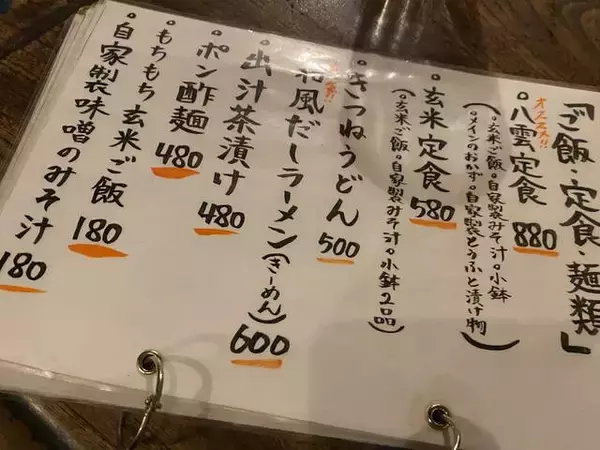 「ご飯・定食・麺類」
オススメ!!
。八雲定食 880
(。玄米ご飯。自家製みそ汁。小鉢
。メインのおかず。自家製とうふと漬け物)
。玄米定食 580
(。玄米ご飯。自家製みそ汁。小鉢2品)
。きつねうどん 500
和風だしラーメン(きーめん) 600
。出汁茶漬け 480
。ポン酢麺 480
。もちもち玄米ご飯 180
。自家製味噌のみそ汁 180